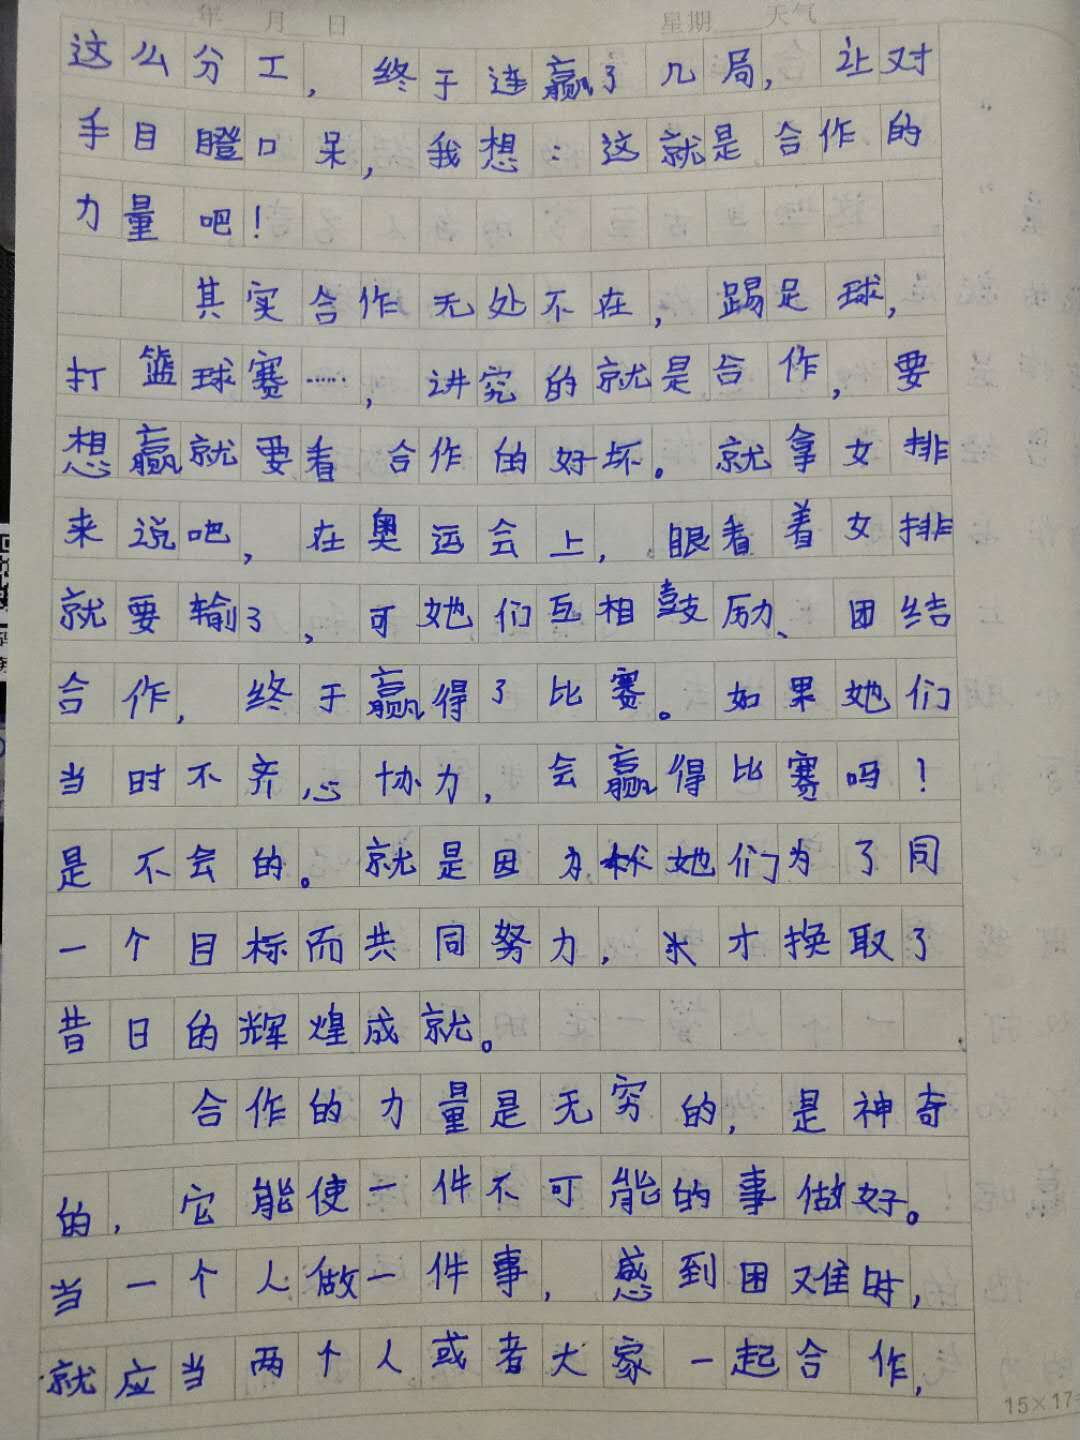 年 月 日 星期 天气
这么分工，终于连赢了几局，让对
手目瞪口呆，我想：这就是合作的
力量吧！
其实合作无处不在，踢足球，
打篮球赛……，讲究的就是合作，要
想赢就要看合作的好坏。就拿女排
来说吧，在奥运会上，眼看着女排
就要输了，可她们互相鼓历、团结
合作，终于赢得了比赛。如果她们
当时不齐心协力，会赢得比赛吗！
是不会的。就是因为她们为了同
一个目标而共同努力，才换取了
昔日的辉煌成就。
合作的力量是无穷的，是神奇
的，它能使一件不可能的事做好。
当一个人做一件事，感到困难时，
就应当两个人或者大家一起合作，
15×17=